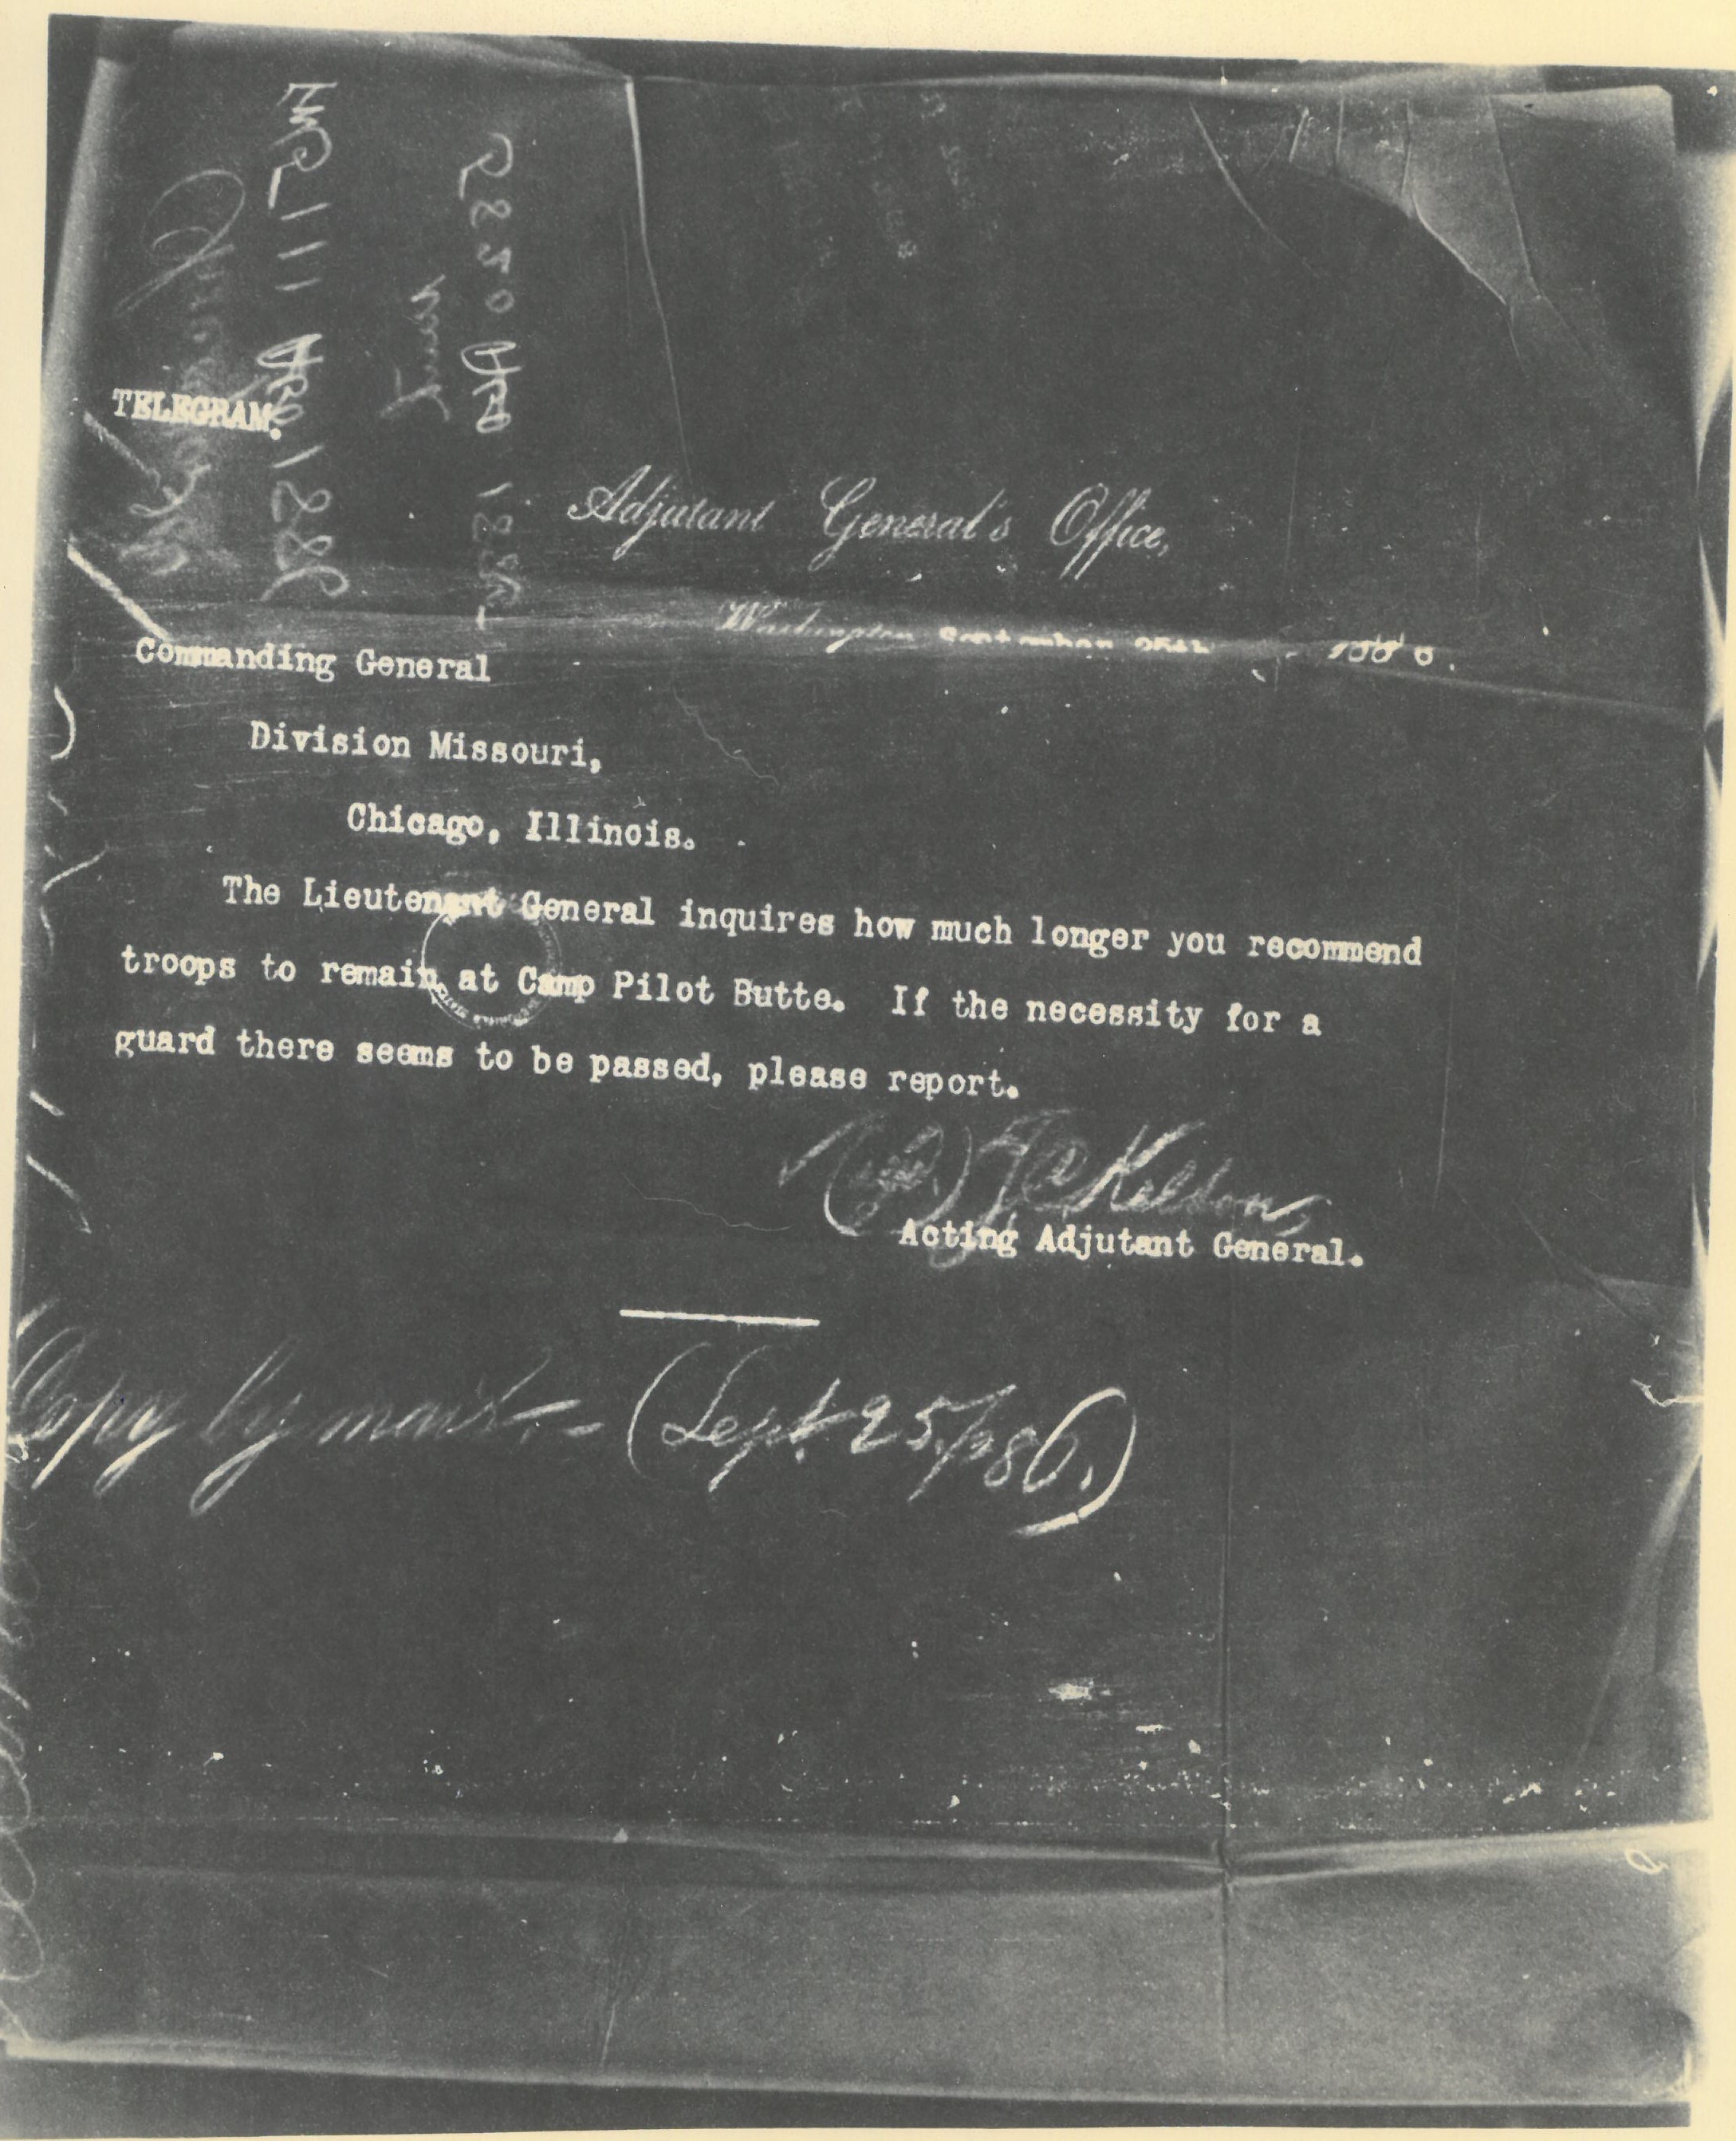 TELEGRAM.
Adjutant General's Office,
Washington September 25th 1886.
Commanding General
Division Missouri,
Chicago, Illinois.
The Lieutenant General inquires how much longer you recommend
troops to remain at Camp Pilot Butte. If the necessity for a
guard there seems to be passed, please report.
J C Kelton
Acting Adjutant General.
Copy by mail.— (Sept. 25/86.)